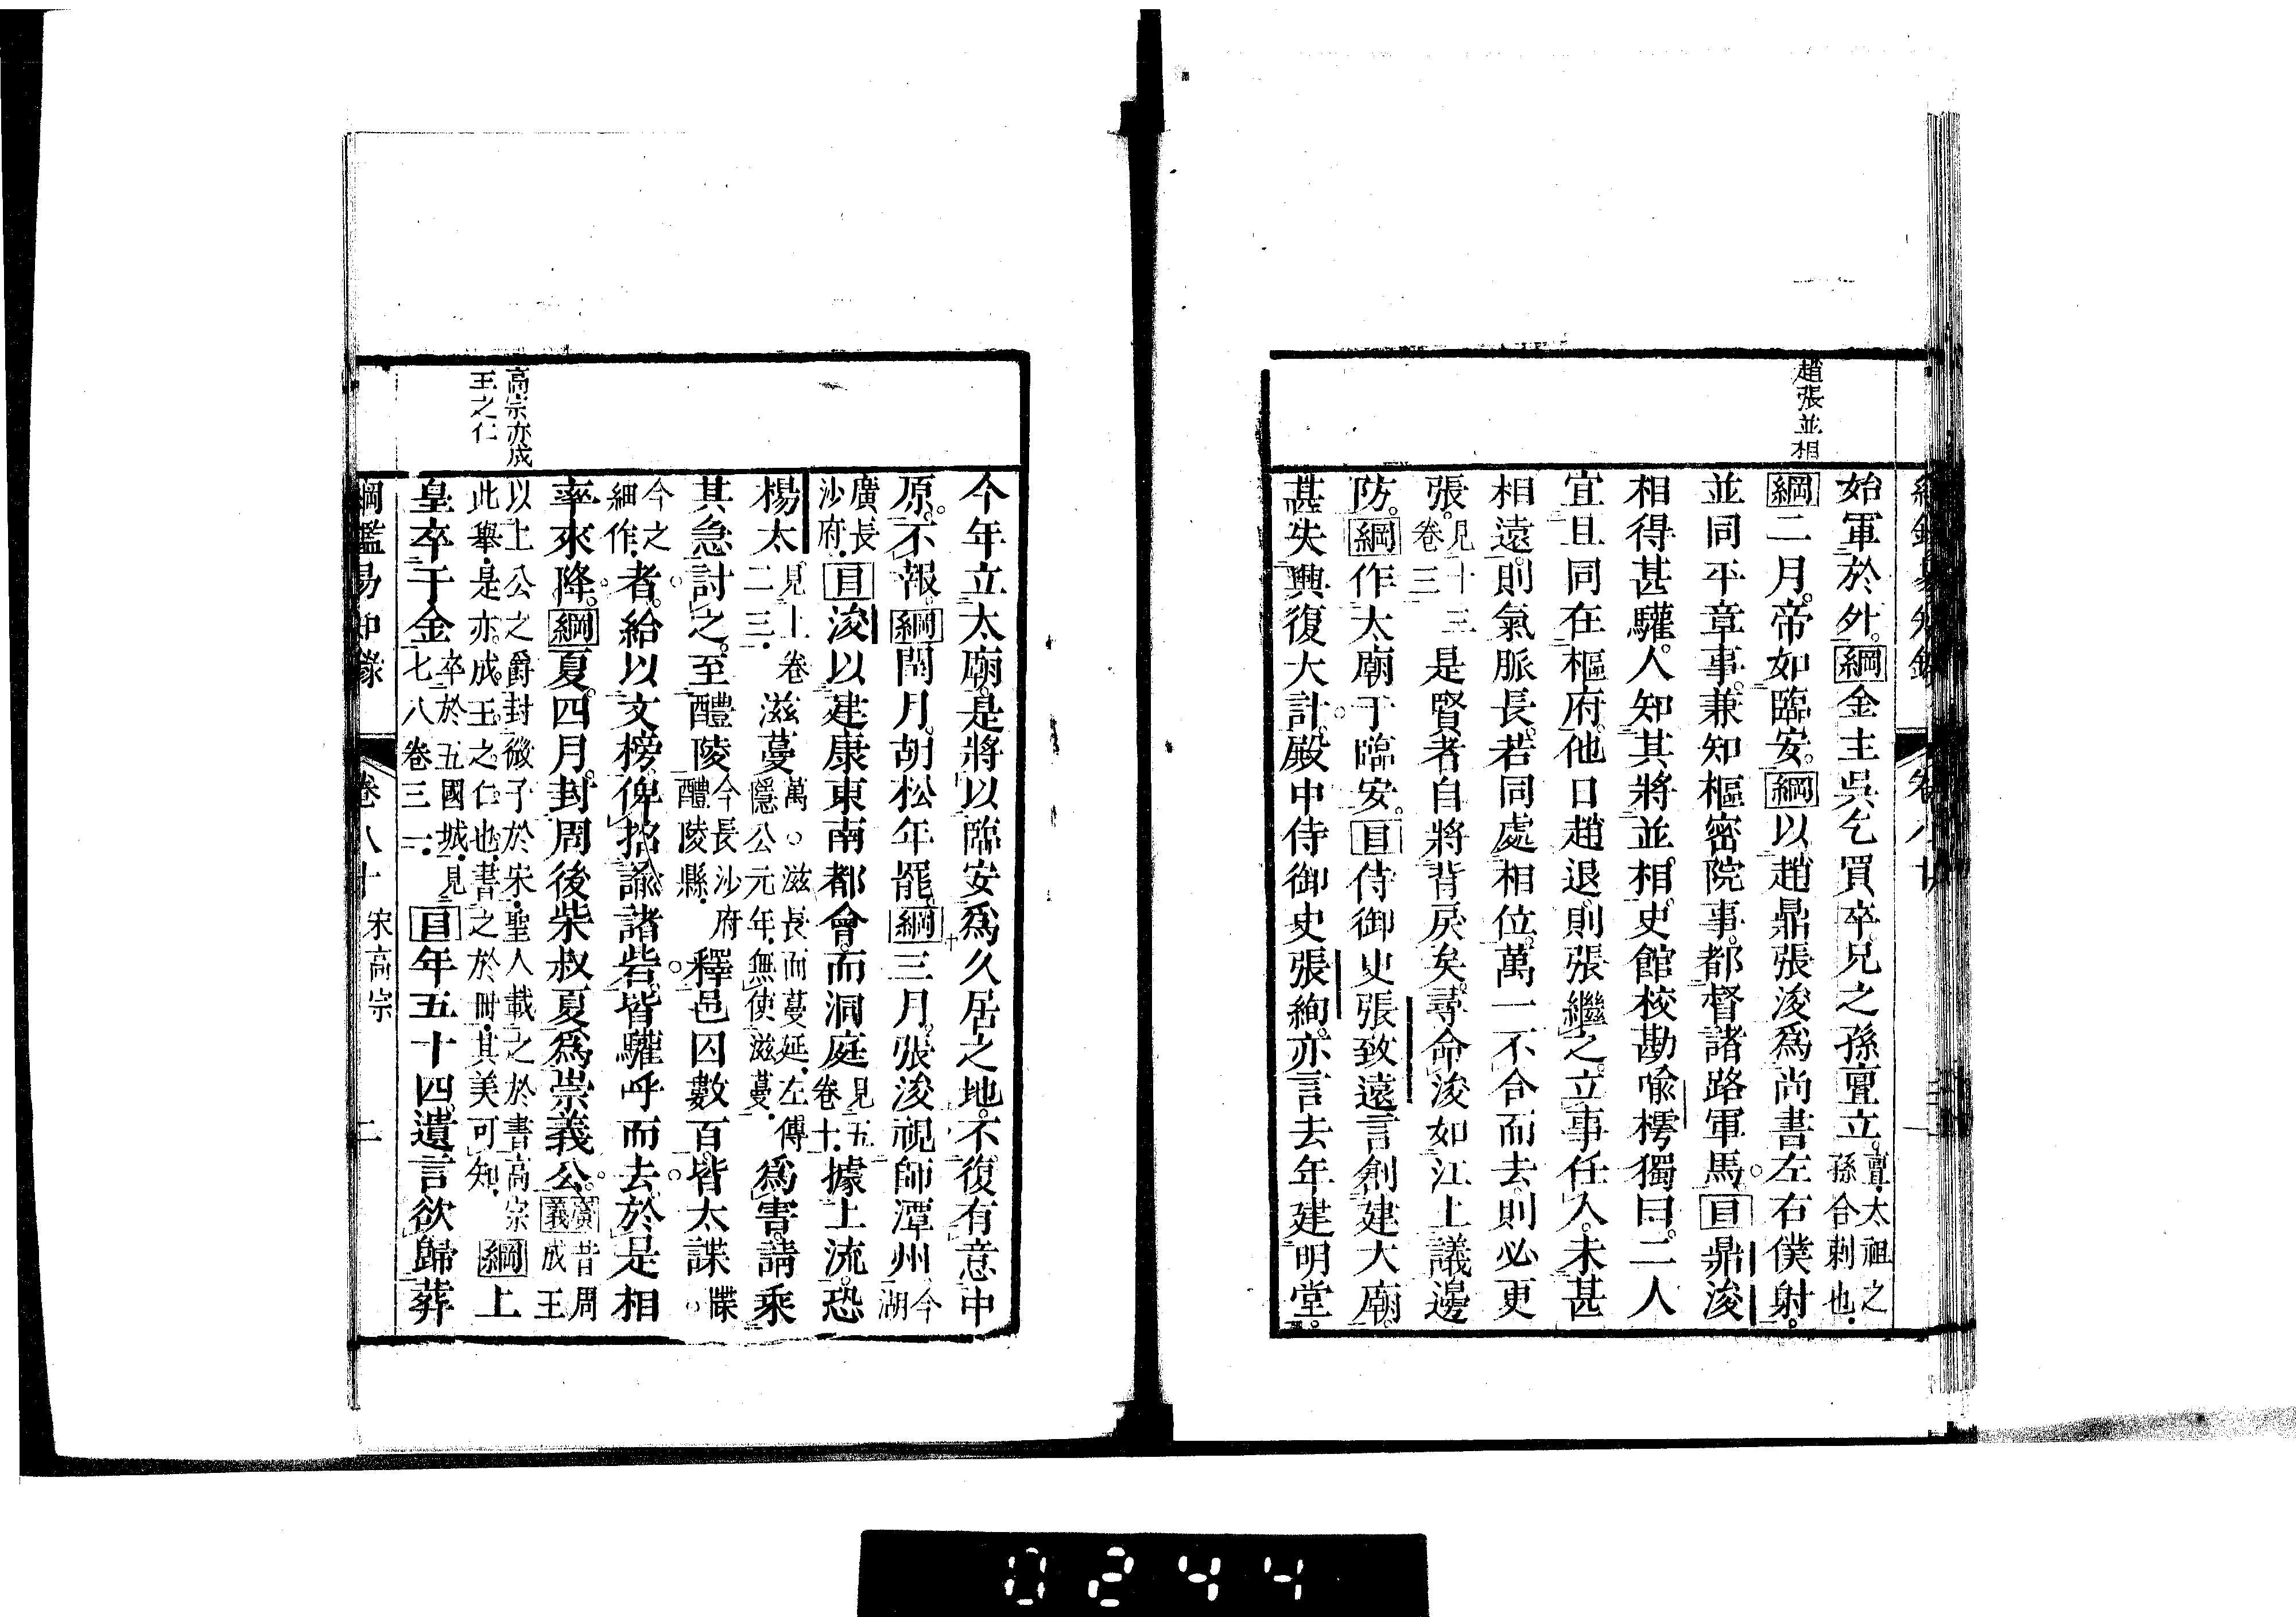 趙張並相
始軍於外。綱金主吳乞買卒。兄之孫亶立。亶。太祖之孫合剌也。
綱二月。帝如臨安。綱以趙鼎張浚爲尚書左右僕射。
並同平章事。兼知樞密院事。都督諸路軍馬。目鼎浚
相得甚驩。人知其將並相。史館校勘喩樗獨曰。二人
宜且同在樞府。他日趙退。則張繼之。立事任人。未甚
相遠。則氣脈長。若同處相位。萬一不合而去。則必更
張。見十三卷三是賢者自將背戾矣。尋命浚如江上議邊
防。綱作太廟于臨安。目侍御史張致遠言創建大廟。
甚失興復大計。殿中侍御史張絢亦言去年建明堂。
今年立太廟。是將以臨安爲久居之地。不復有意中
原。不報。綱閏月。胡松年罷。綱三月。張浚視師潭州今湖
廣長沙府。目浚以建康東南都會。而洞庭見五卷十。據上流。恐
楊太見上卷二三。滋蔓萬。○滋長而蔓延。左傳隱公元年。無使滋蔓。爲害。請乘
其急討之。至醴陵今長沙府醴陵縣。釋邑囚數百。皆太諜牒○
今之細作。者。給以文榜。俾招諭諸砦。皆驩呼而去。於是相
率來降。綱夏。四月。封周後柴叔夏爲崇義公。廣義昔周成王
以上公之爵封微子於宋。聖人載之於書。高宗此擧。是亦成王之仁也。書之於冊。其美可知。綱上
皇卒于金卒於五國城。見七八卷三一。目年五十四。遺言欲歸葬
高宗亦成
王之仁
綱鑑易知錄 卷八十 宋高宗 二
0244